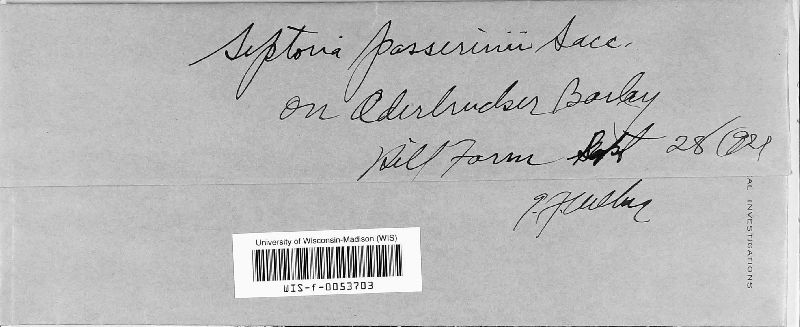 Septoria passerinii Sacc.
on Oderbrucker Barley
Hill Farm Sept 28 1921
AL INVESTIGATIONS
University of Wisconsin-Madison (WIS)
WIS-f-0053703